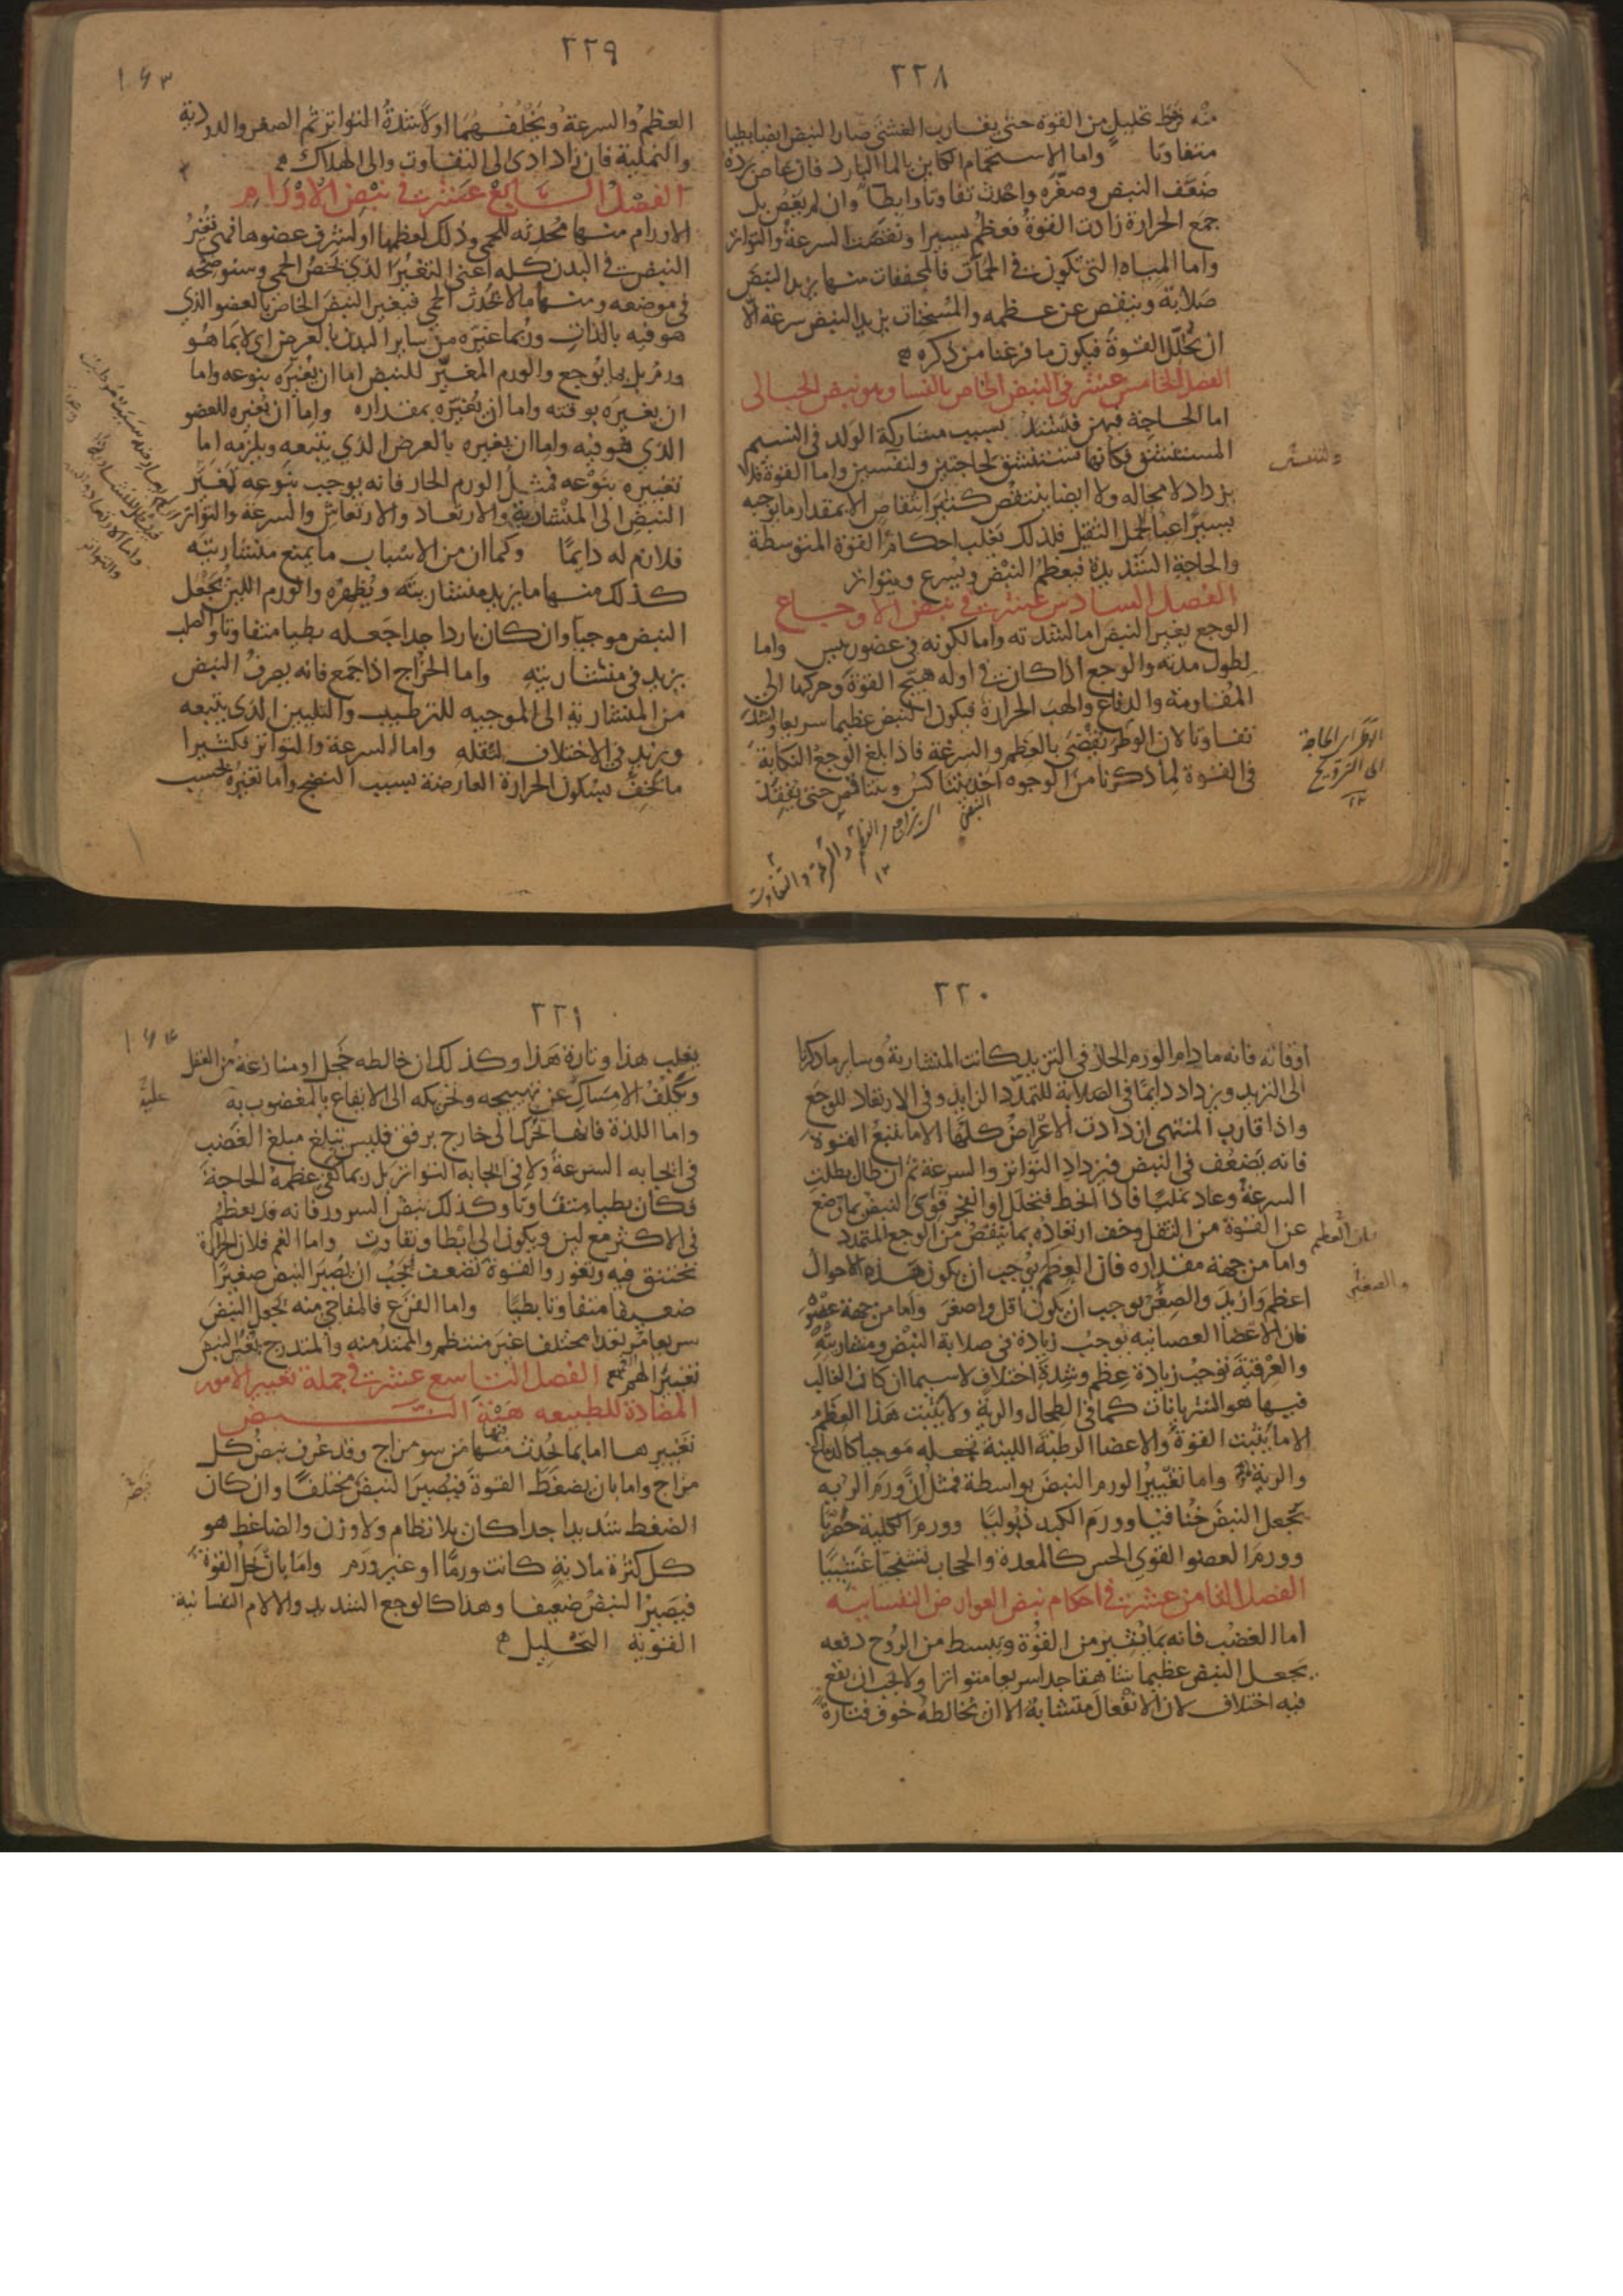 ٢٢٨
منه فرط تحليل من القوة حتى يقارب الغشى صار النبض ايضا بطيا
متفاوتا واما الاستحمام الكاين بالماء البارد فان غاص برده
ضعّف النبض وصغّره واحدث تفاوتا وابطآ وان لم يغص بل
جمع الحرارة زادت القوة فعظم يسيرا ونقصت السرعة والتواتر
واما المياه التى تكون فى الحمآت فالمجففات منها يزيد النبض
صلابة وينقص من عظمه والمسخنات يزيد النبض سرعة الّا
ان تحلّل القوة فيكون ما فرغنا من ذكره
الفصل الخامس عشر فى النبض الخاص بالنسا وهو نبض الحبالى
اما الحاجة فيهن فتشتد بسبب مشاركة الولد فى النسيم
المستنشق فكانها تستنشق لحاجتين ولنفسين واما القوة فلا
يزداد لا محاله ولا ايضا ينتقص كثير انتقاص الا بمقدار ما يوجبه
يسير اعيا لحمل الثقيل فلذلك يغلب احكام القوة المتوسطة
والحاجة الشديدة فيعظم النبض ويسرع ويتواتر
الفصل السادس عشر فى نبض الاوجاع
الوجع يغير النبض اما لشدته واما لكونه فى عضو رييس واما
لطول مدته والوجع اذا كان فى اوله هيّج القوة وحركها الى
المقاومة والدفاع والهب الحرارة فيكون النبض عظيما سريعا واشد
تفاوتا لان الوطر يقضى بالعظم والسرعة فاذا بلغ الوجع النكاية
فى القوة لما ذكرنا من الوجوه اخذ يتناكس ويتناقص حتى يفقد
٢٢٩
العظم والسرعة ويخلفهما اولا شدة التواتر ثم الصغر والدودية
والنملية فان زاد ادى الى التفاوت والى الهلاك
الفصل السابع عشر فى نبض الاورام
الاورام منها محدثه للحمى وذلك لعظمها او لشرف عضوها فهى تغير
النبض فى البدن كله اعنى التغير الذى يخص الحمى وسنوضحه
فى موضعه ومنها ما لا يحدث الحمى فيغير النبض الخاص بالعضو الذى
هو فيه بالذات وربما غيّره من ساير البدن بالعرض اى لا بما هو
ورم بل بما يوجع والورم المغيّر للنبض اما ان يغيره بنوعه واما
ان يغيره بوقته واما ان يغيّره بمقداره واما ان يغيره للعضو
الذى هو فيه واما ان يغيره بالعرض الذى يتبعه ويلزمه اما
تغييره بنوعه فمثل الورم الحار فانه يوجب بنوعه تغيّر
النبض الى المنشارية والارتعاد والارتعاش والسرعة والتواتر
فلازم له دايمًا وكما ان من الاسباب ما يمنع منشاريته
كذلك منها ما يزيد منشاريته ويظهره والورم اللين يجعل
النبض موجيا وان كان باردا جدا جعله بطيا متفاوتا والصلب
يزيد فى منشاريته واما الخراج اذا جمع فانه يصرف النبض
من المنشارية الى الموجيه للترطيب والتليين الذى يتبعه
ويزيد فى الاختلاف لثقله واما السرعة والتواتر فكثيرا
ما يخفّ بسكون الحرارة العارضة بسبب النضج واما تغيره بحسب
٢٣٠
اوقاته فانه ما دام الورم الحار فى التزيد كانت المنشارية وساير ما ذكرنا
الى التزيد ويزداد دايمًا فى الصلابة للتمدّد الزايد وفى الارتعاد للوجع
واذا قارب المنتهى ازدادت الاعراض كلها الا ما يتبع القوة
فانه يضعف فى النبض فيزداد التواتر والسرعة ثم ان طال بطلت
السرعة وعاد نمليًا فاذا انحط فتحلل او انفجر قوى النبض بما وضع
عن القوة من الثقل وخف ارتعاده بما ينقص من الوجع المتمدد
واما من جهة مقداره فان العظم يوجب ان يكون هذه الاحوال
اعظم وازيد والصغر يوجب ان يكون اقل واصغر واما من جهة عضوه
فان الاعضا العصبانيه يوجب زيادة فى صلابة النبض ومنشاريته
والعرقية توجب زيادة عظم وشدة اختلاف لاسيما ان كان الغالب
فيها هو الشريانات كما فى الطحال والرية ولا يثبت هذا العظم
الا ما يثبت القوة والاعضا الرطبة اللينة تجعله موجيا كالدماغ
والرية واما تغيير الورم النبض بواسطة فمثل انّ ورم الريه
يجعل النبض خناقيا وورم الكبد ذبوليا وورم الكلية حصريا
وورم العضو القوى الحس كالمعدة والحجاب تشنجيا غشييا
الفصل الثامن عشر فى احكام نبض العوارض النفسانيه
اما الغضب فانه بما يثير من القوة ويبسط من الروح دفعه
يجعل النبض عظيما شاهقا جدا سريعا متواترا ولا يجب ان يقع
فيه اختلاف لان الانفعال متشابه الا ان تخالطه خوف فتارة
٢٣١
يغلب هذا وتارة هذا وكذلك ان خالطه خجل او منازعة من العقل
وتكلف الامساك عن تهييجه وتحريكه الى الايقاع بالمغضوب به
واما اللذة فانها تحرك الى خارج برفق فليس تبلغ مبلغ الغضب
فى ايجابه السرعة ولا فى ايجابه التواتر بل ربما كفى عظمه الحاجة
فكان بطيا متفاوتا وكذلك نبض السرور فانه قد يعظم
فى الاكثر مع لين ويكون الى ابطا وتفاوت واما الغم فلان الحرارة
تختنق فيه وتغور والقوة تضعف يجب ان يصير النبض صغيرا
ضعيفا متفاوتا بطيًا واما الفزع فالمفاجى منه يجعل النبض
سريعا مرتعدا مختلفا غير منتظم والممتد منه والمتدرج يغير النبض
تغيير الهم الفصل التاسع عشر فى جملة تغيير الامور
المضادة للطبيعه هيئة النبض
تغييرها اما بما يحدث منها من سو مزاج وقد عرف نبض كل
مزاج واما بان يضغط القوة فيصير النبض مختلفًا وان كان
الضغط شديدا جدا كان بلا نظام ولا وزن والضاغط هو
كل كثرة مادية كانت ورمًا او غير ورم واما بان تحل القوة
فيصير النبض ضعيفا وهذا كالوجع الشديد والالام النفسانية
القوية التحليل